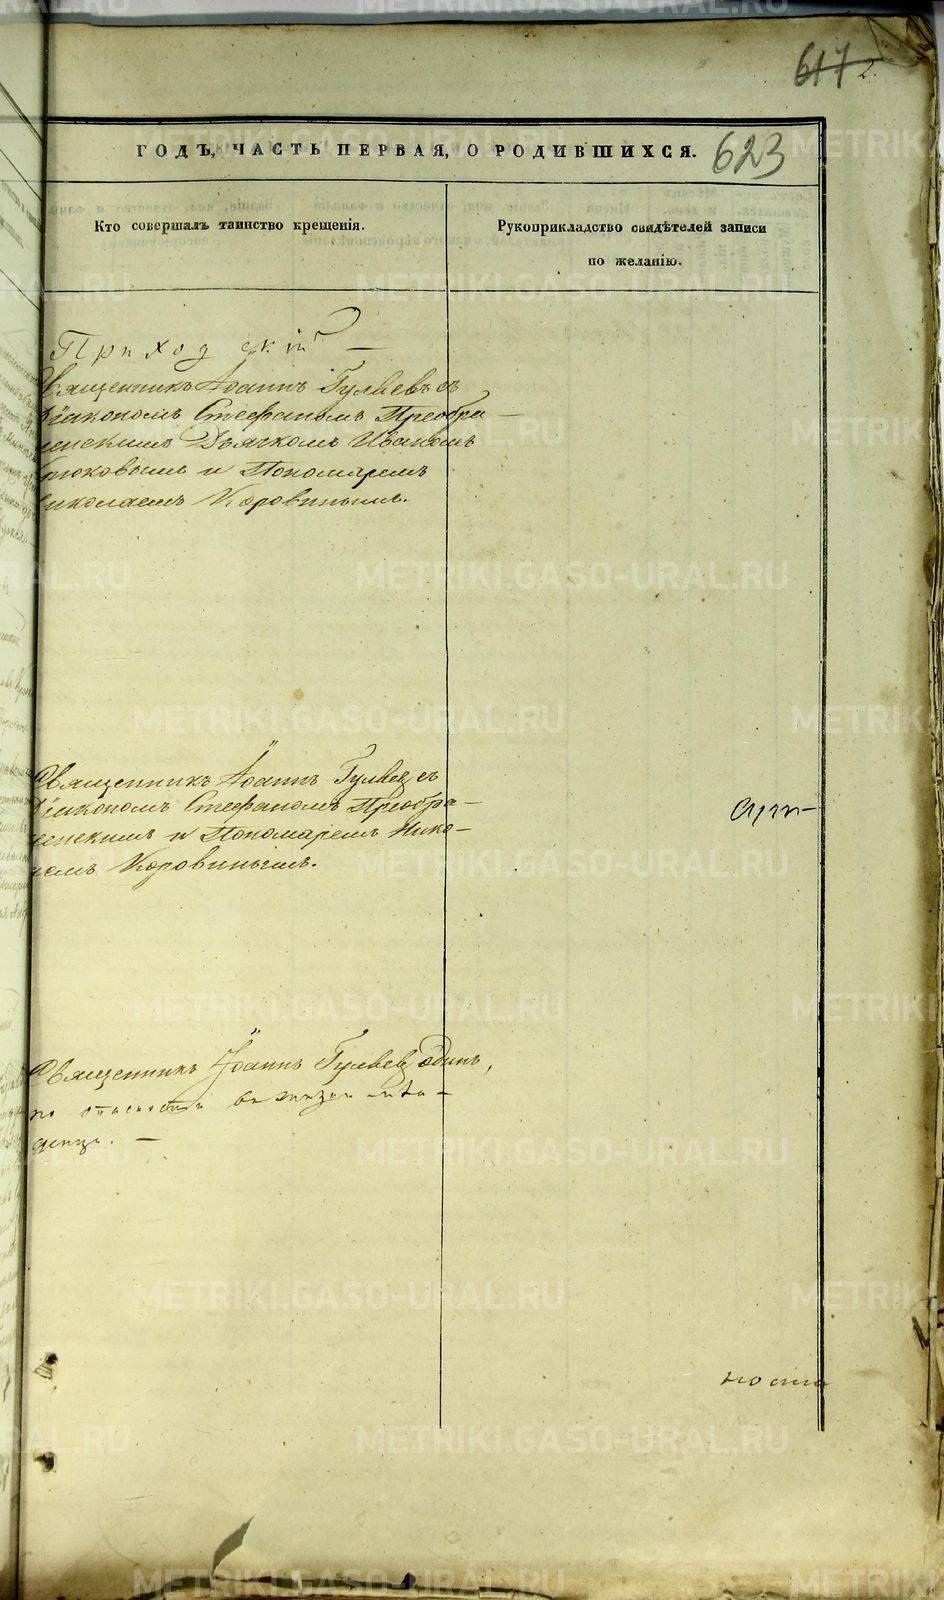 617 2.
ГОДЪ, ЧАСТЬ ПЕРВАЯ, О РОДИВШИХСЯ. 623
Кто совершалъ таинство крещенія.
Рукоприкладство свидѣтелей записи
по желанію.
Приходскій —
Священникъ Іоаннъ Гуляевъ съ
Діакономъ Стефаномъ Преобра-
женскимъ Дьячкомъ Иваномъ
и Пономаремъ
Николаемъ Коровинымъ.
Священникъ Іоаннъ Гуляев съ
Діакономъ Стефаномъ Преобра-
женскимъ и Пономаремъ Нико-
лаемъ Коровинымъ.
Священникъ Іоаннъ Гуляев одинъ,
по опасности въ жизни мла-
денца. —
ности
METRIKI.GASO-URAL.RU